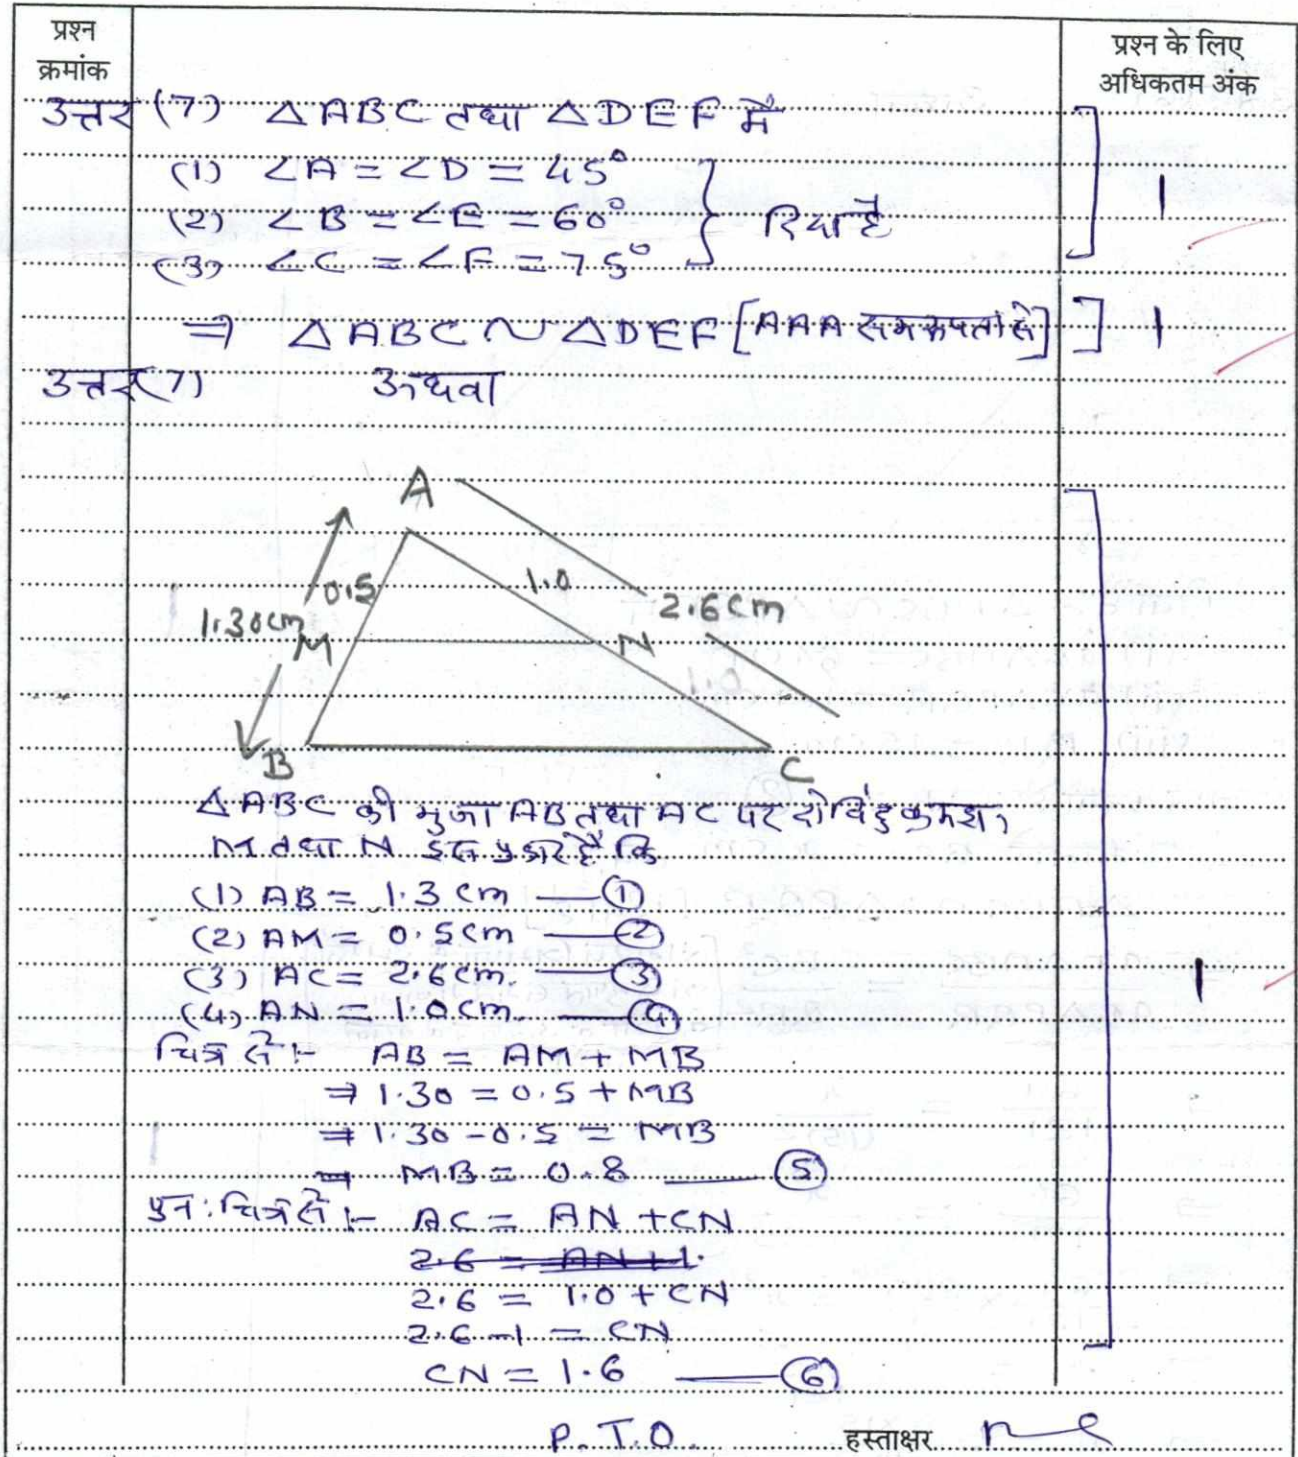 प्रश्न क्रमांक
प्रश्न के लिए अधिकतम अंक
उत्तर (7) △ABC तथा △DEF में
(1) ∠A = ∠D = 45°
(2) ∠B = ∠E = 60° } दिया है
(3) ∠C = ∠F = 75°
1
⇒ △ABC ~ △DEF [AAA समरूपता से] ] 1
उत्तर (7) अथवा
A
0.5
1.0
1.30cm
2.6cm
M
N
1.0
B
C
△ABC की भुजा AB तथा AC पर दो बिंदु क्रमशः
M तथा N इस प्रकार हैं कि
(1) AB = 1.3 cm — ①
(2) AM = 0.5cm — ②
(3) AC = 2.6cm. — ③
(4) AN = 1.0cm. — ④
1
चित्र से :- AB = AM + MB
⇒ 1.30 = 0.5 + MB
⇒ 1.30 - 0.5 = MB
⇒ MB = 0.8 — ⑤
पुन: चित्र से :- AC = AN + CN
2.6 = AN + 1.
2.6 = 1.0 + CN
2.6 - 1 = CN
CN = 1.6 — ⑥
P.T.O.
हस्ताक्षर